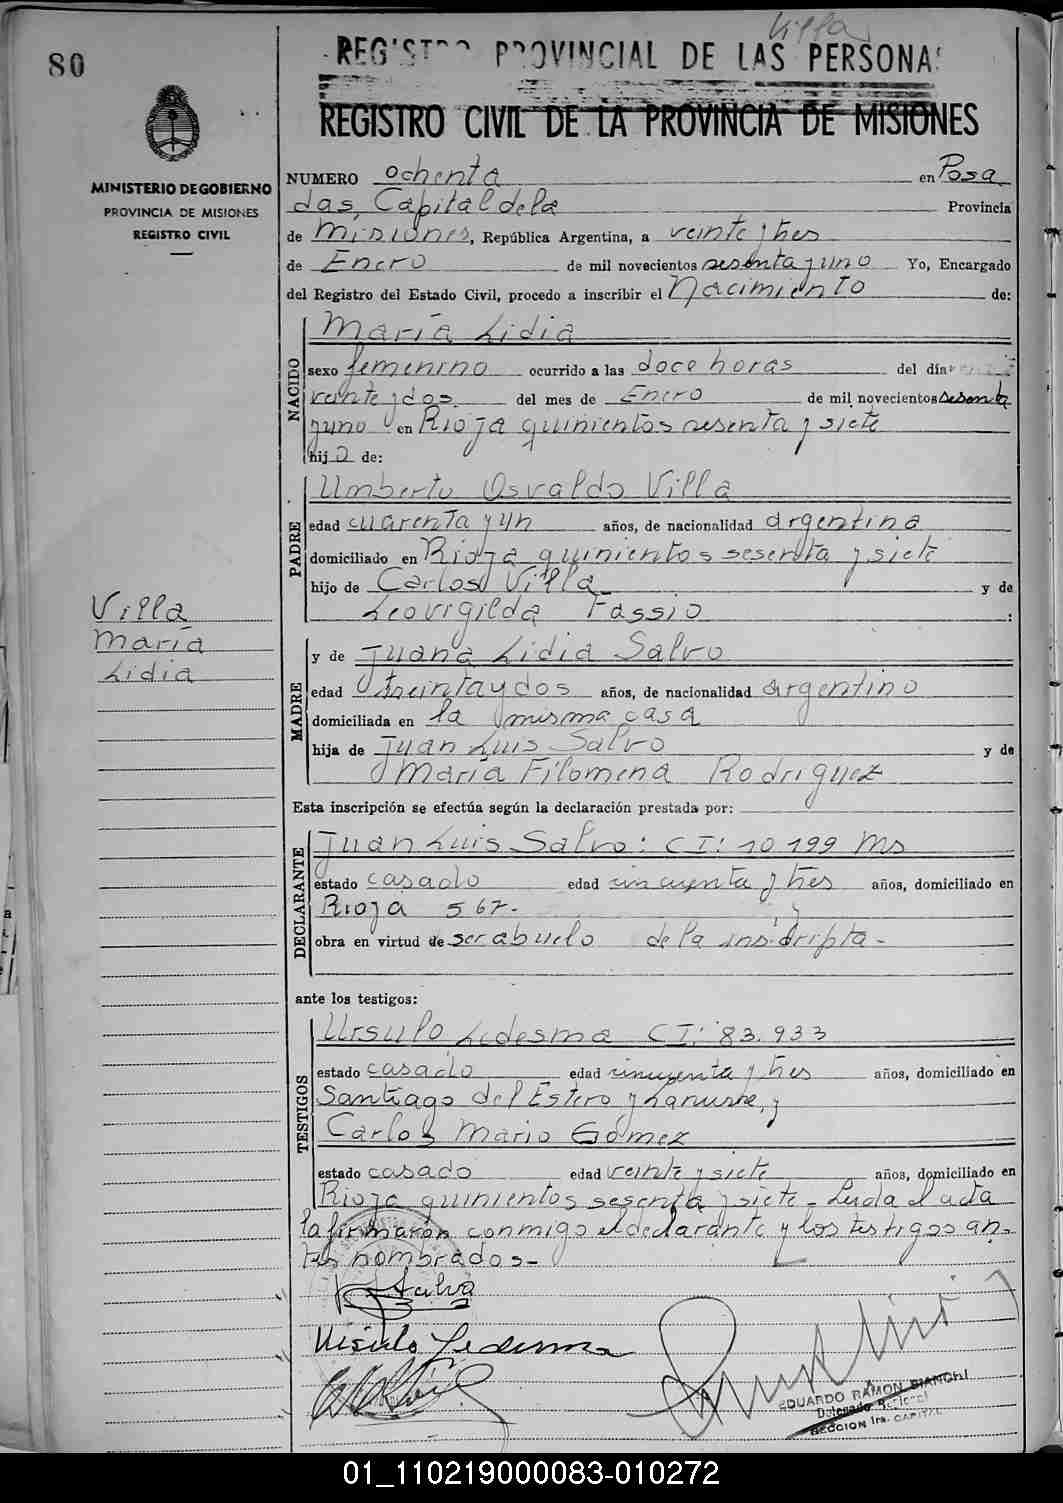 Villa
80
REGISTRO PROVINCIAL DE LAS PERSONAS
REGISTRO CIVIL DE LA PROVINCIA DE MISIONES
MINISTERIO DE GOBIERNO
PROVINCIA DE MISIONES
REGISTRO CIVIL
NUMERO ochenta en Posa
das, Capital de la Provincia
de Misiones, República Argentina, a veinte y tres
de Enero de mil novecientos sesenta y uno Yo, Encargado
del Registro del Estado Civil, procedo a inscribir el Nacimiento de:
NACIDO
María Lidia
sexo femenino ocurrido a las doce horas del día
veinte y dos del mes de Enero de mil novecientos sesenta
y uno en Rioja quinientos sesenta y siete
hija de:
PADRE
Umberto Osvaldo Villa
edad cuarenta y un años, de nacionalidad argentina
domiciliado en Rioja quinientos sesenta y siete
hijo de Carlos Villa y de
Leovigilda Fassio :
Villa
María
Lidia
MADRE
y de Juana Lidia Salvo
edad treinta y dos años, de nacionalidad argentino
domiciliada en la misma casa
hija de Juan Luis Salvo y de
María Filomena Rodriguez
Esta inscripción se efectúa según la declaración prestada por:
DECLARANTE
Juan Luis Salvo: CI: 10199 Ms
estado casado edad cincuenta y tres años, domiciliado en
Rioja 567.-
obra en virtud de ser abuelo de la inscripta-
ante los testigos:
TESTIGOS
Ursulo Ledesma CI: 83.933
estado casado edad cincuenta y tres años, domiciliado en
Santiago del Estero y Lanusse, y
Carlos Mario Gomez
estado casado edad veinte y siete años, domiciliado en
Rioja quinientos sesenta y siete - Leida el acta
la firmaron conmigo el declarante y los testigos an-
tes nombrados-
Salvo
Ursulo Ledesma
EDUARDO RAMON BIANCHI
Delegado Regional
SECCION 1ra. CAPITAL
01_110219000083-010272